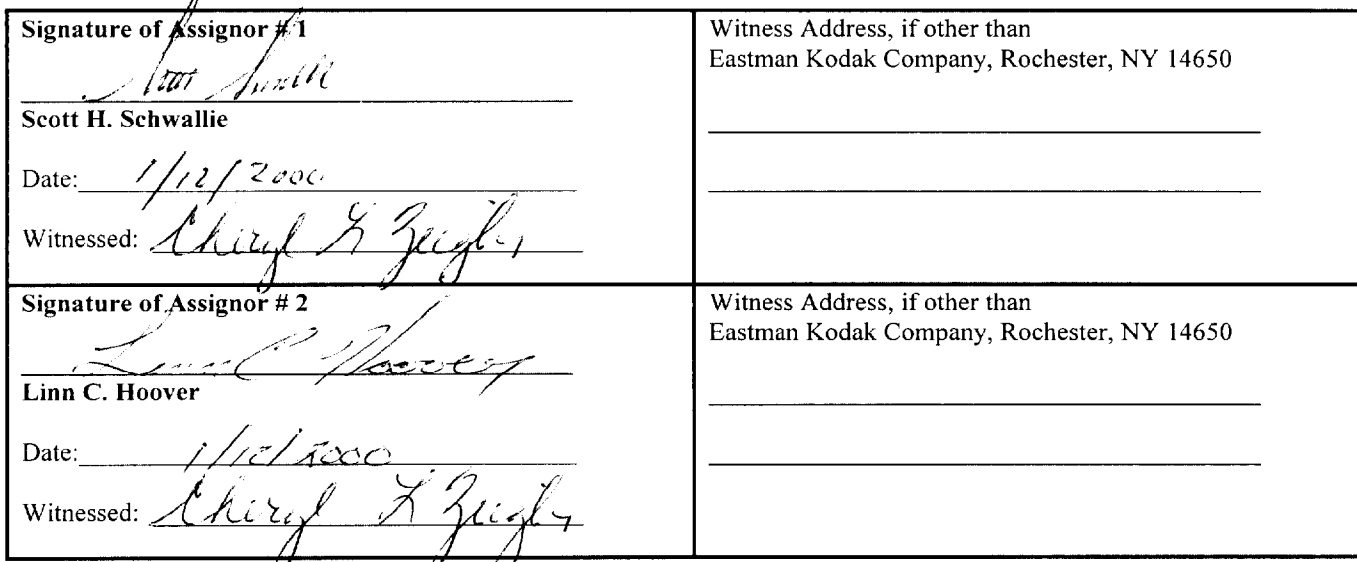 Signature of Assignor # 1
Scott H. Schwallie
Date: 1/12/2000
Witnessed: Cheryl L Zeigler
Witness Address, if other than
Eastman Kodak Company, Rochester, NY 14650
Signature of Assignor # 2
Linn C Hoover
Linn C. Hoover
Date: 1/12/2000
Witnessed: Cheryl L Zeigler
Witness Address, if other than
Eastman Kodak Company, Rochester, NY 14650